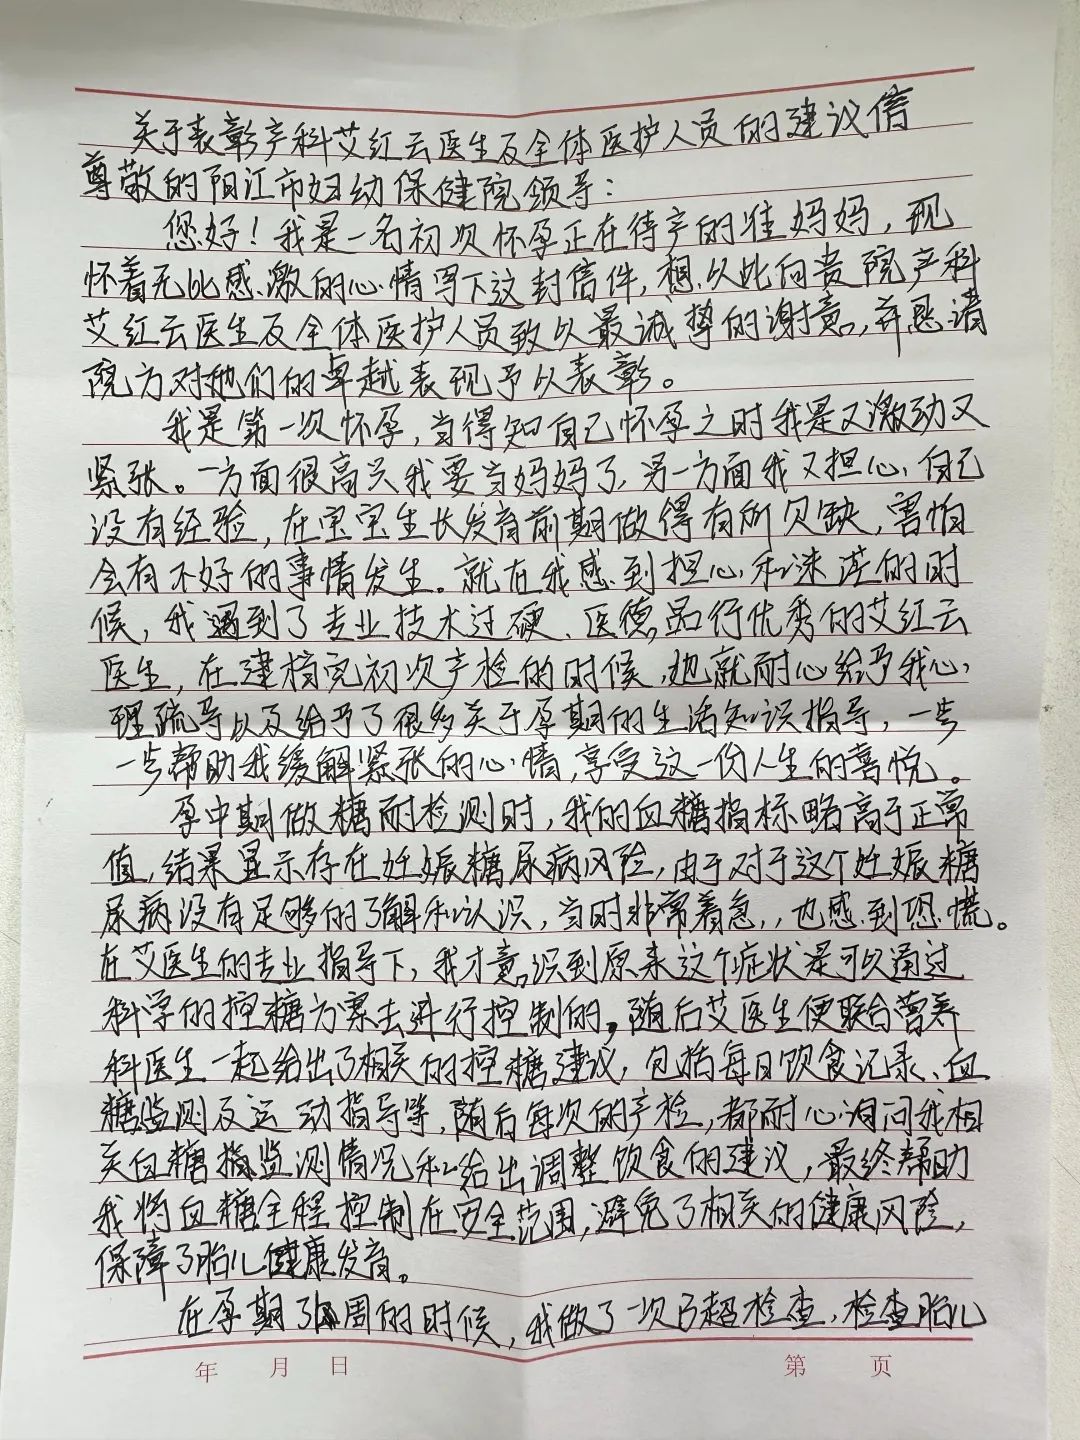 关于表彰产科艾红云医生及全体医护人员的建议信
尊敬的阳江市妇幼保健院领导：
您好！我是一名初次怀孕正在待产的准妈妈，现
怀着无比感激的心情写下这封信件，想以此向贵院产科
艾红云医生及全体医护人员致以最诚挚的谢意，并恳请
院方对他们的卓越表现予以表彰。
我是第一次怀孕，当得知自己怀孕之时我是又激动又
紧张。一方面很高兴我要当妈妈了，另一方面我又担心自己
没有经验，在宝宝生长发育前期做得有所欠缺，害怕
会有不好的事情发生。就在我感到担心和迷茫的时
候，我遇到了专业技术过硬、医德品行优秀的艾红云
医生，在建档完初次产检的时候，她就耐心给予我心
理疏导以及给予了很多关于孕期的生活知识指导，一步
一步帮助我缓解紧张的心情，享受这一份人生的喜悦。
孕中期做糖耐检测时，我的血糖指标略高于正常
值，结果显示存在妊娠糖尿病风险，由于对于这个妊娠糖
尿病没有足够的了解和认识，当时非常着急，也感到恐慌。
在艾医生的专业指导下，我才意识到原来这个症状是可以通过
科学的控糖方案去进行控制的。随后艾医生便联合营养
科医生一起给出了相关的控糖建议，包括每日饮食记录、血
糖监测及运动指导等，随后每次的产检，都耐心询问我相
关血糖指监测情况和给出调整饮食的建议，最终帮助
我将血糖全程控制在安全范围，避免了相关的健康风险，
保障了胎儿健康发育。
在孕期周的时候，我做了一次B超检查，检查胎儿
年 月 日 第 页